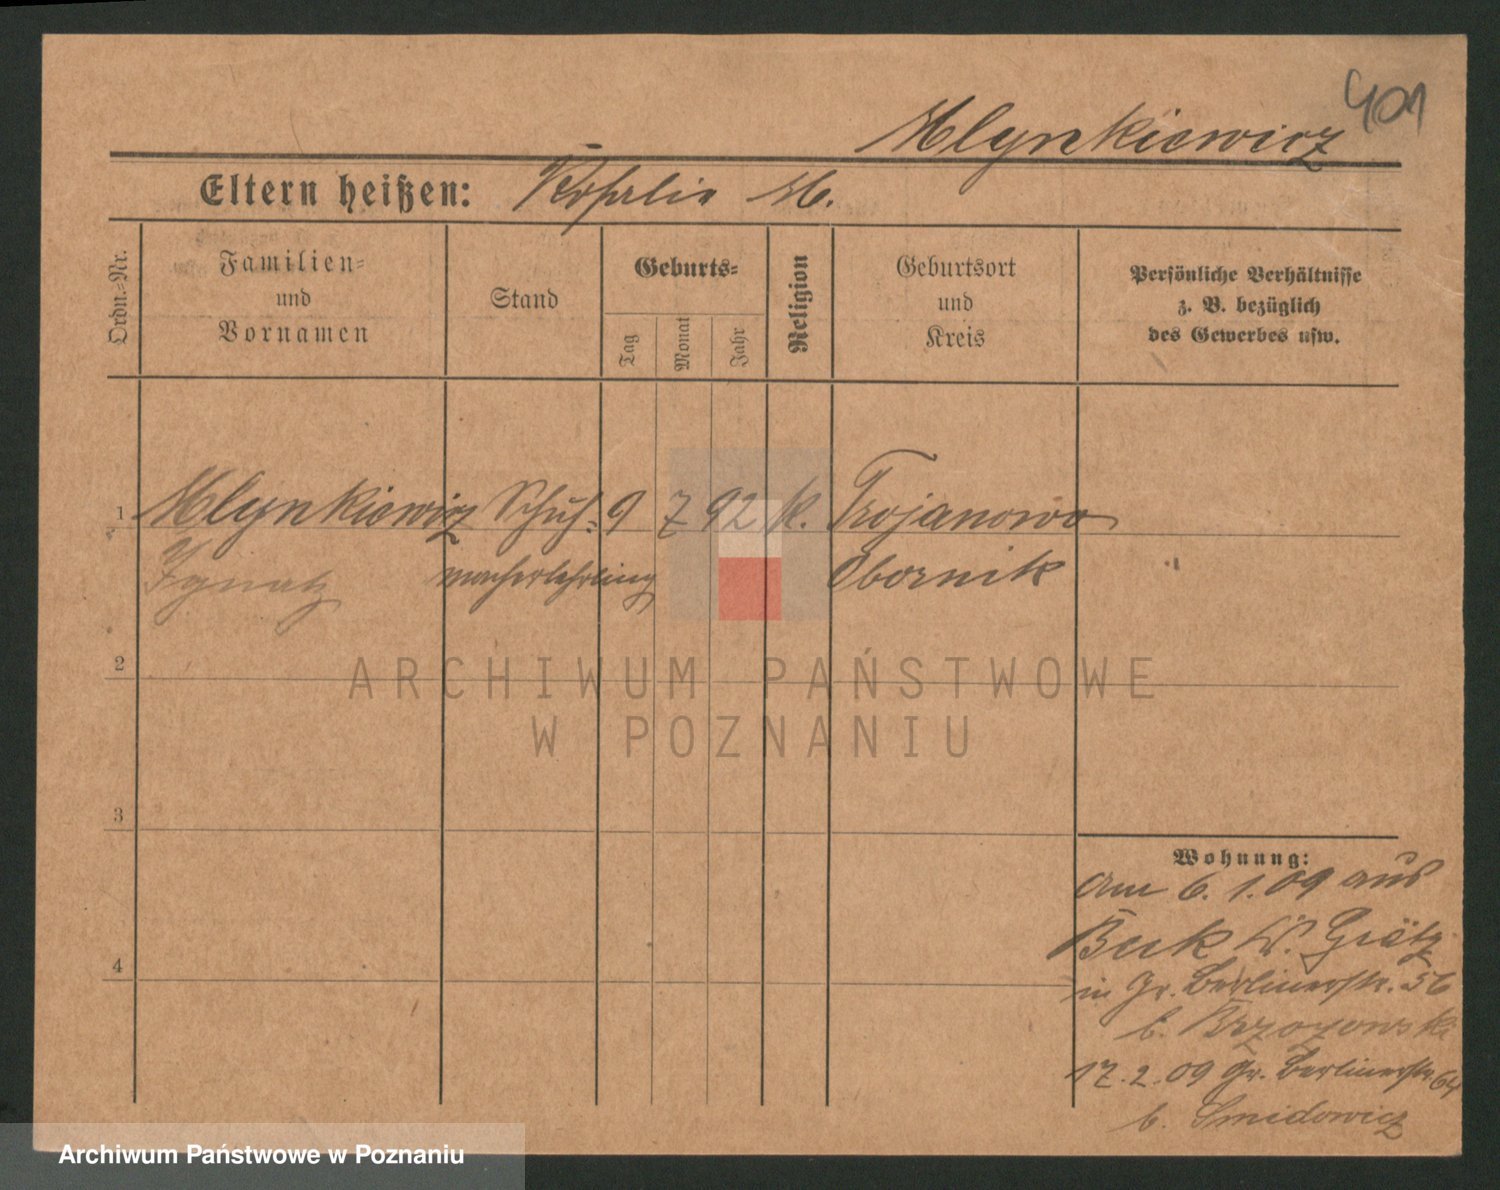 401
Mlynkiewicz
Eltern heißen: Rosalie M.
Ordn.-Nr.
Familien-
und
Vornamen
Stand
Geburts-
Tag
Monat
Jahr
Religion
Geburtsort
und
Kreis
Persönliche Verhältnisse
z. B. bezüglich
des Gewerbes usw.
1 Mlynkiewicz Schuh- 9 7 92 k. Trojanowo
Ignatz macherlehrling Obornik
2
ARCHIWUM PAŃSTWOWE
W POZNANIU
3
Wohnung:
am 6. 1. 09 aus
Buk Grätz
in Gr. Berlinerstr. 56
b. Brzozowski
17. 2. 09 Gr. Berlinerstr. 64
b. Smidowicz
4
Archiwum Państwowe w Poznaniu